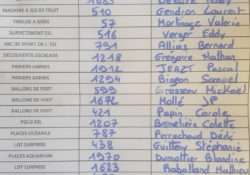 1085
MACHINE A JUS DE FRUIT 510 Gendron Laurent
TIREUSE A BIERE 57 Martinage Valerie
SURVETEMENT ESL 516 Verger Eddy
SAC DE SPORT DE L'ESL 791 Allias Bernard
DECOUVERTE ESCALADE 1218 Gregoire Nathan
PANIERS GARNIS 1912 TERZI Pascal
PANIERS GARNIS 1294 Bignon Samuel
BALLONS DE FOOT 599 Grosseau Mickael
BALLONS DE FOOT 1672 Mollé JP
BALLONS DE FOOT 421 Papin Carole
POLO ESL 1207 Brenelière Colette
PLACES OCEANILE 787 Perrochaud Dédé
LOT SURPRISE 438 Guitteny Stéphanie
PLACES AQUARIUM 1970 Dumoitier Blandine
LOT SURPRISE 1623 Raballand Mathias